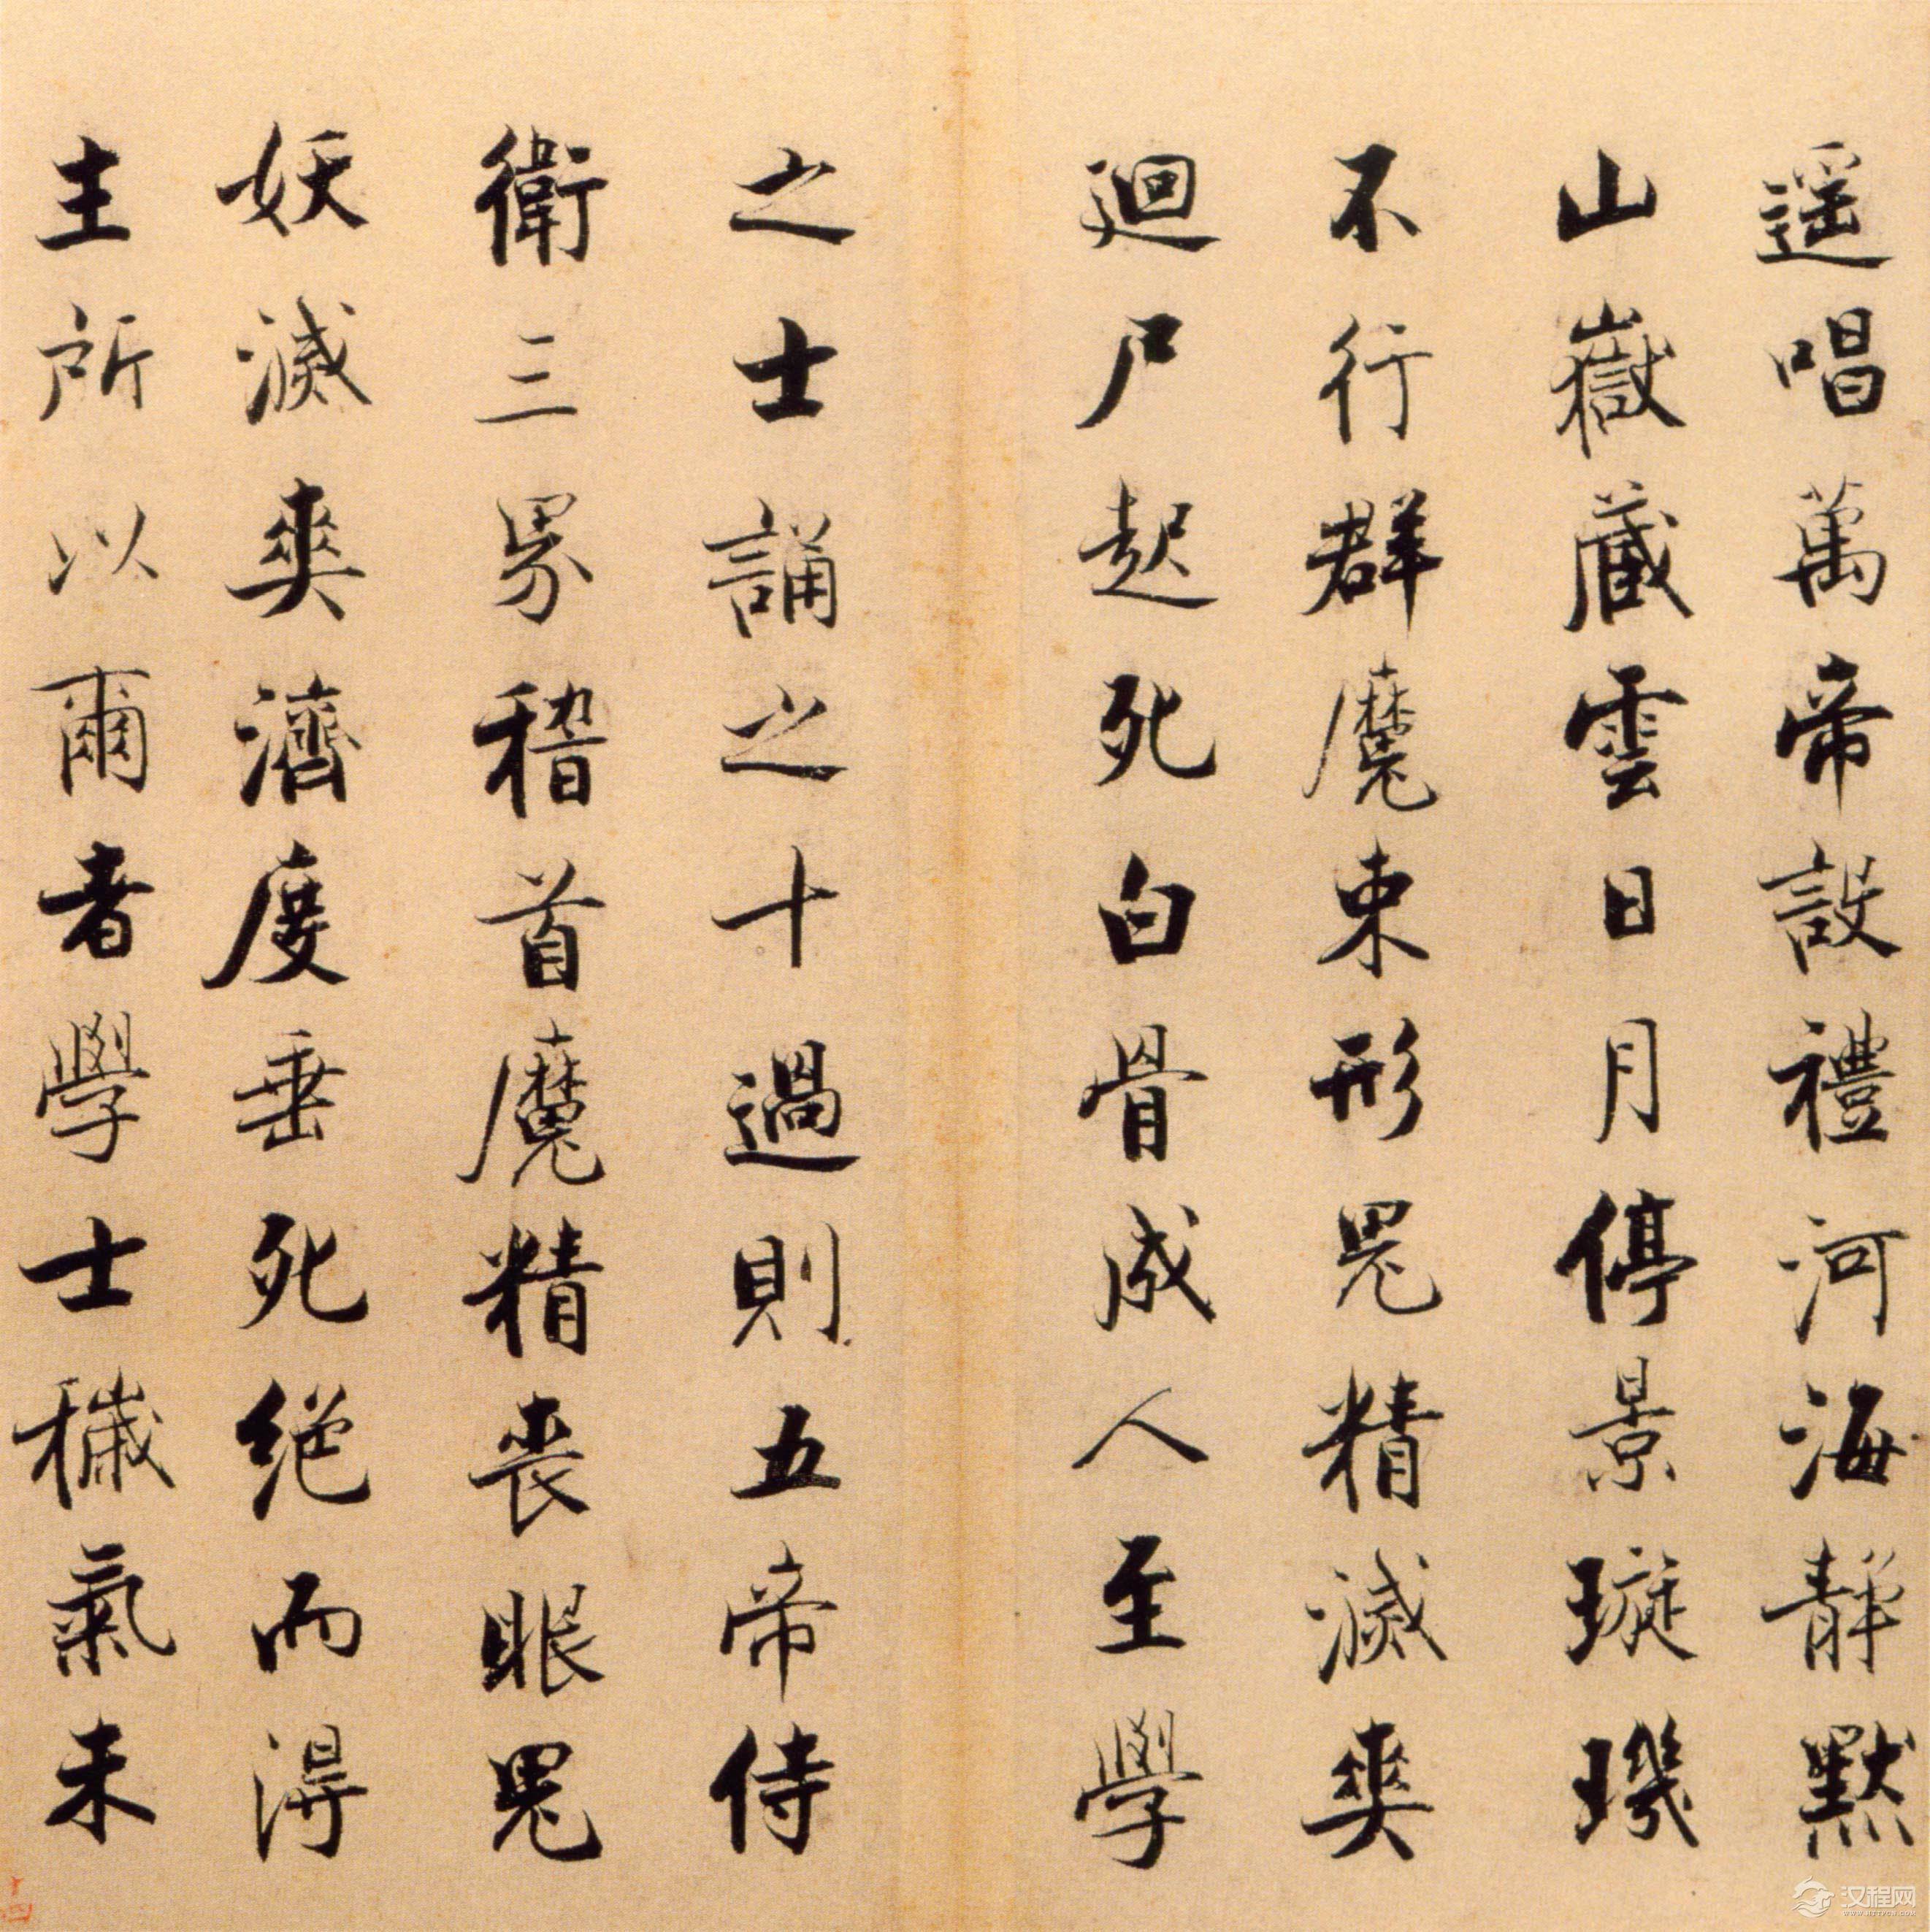 遥唱萬帝設禮河海靜默
山嶽藏雲日月停景璇璣
不行群魔束形鬼精滅爽
迴尸起死白骨成人至學
之士誦之十過則五帝侍
衛三界稽首魔精喪眼鬼
妖滅爽濟度垂死絕而得
主所以爾者學士穢氣未
十四
汉程网